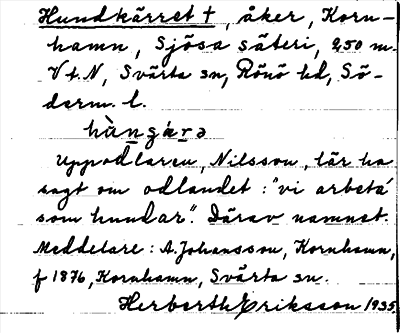 Hundkärret †, åker, Korn-
hamn, Sjösa säteri, 250 m.
V t. N, Svärta sn, Rönö hd, Sö-
derm. l.
hùngárə
Uppodlaren, Nilsson, lär ha
sagt om odlandet: "vi arbeta'
som hundar". Därav namnet.
Meddelare: A. Johansson, Kornhamn,
f 1876, Kornhamn, Svärta sn.
Herbert Eriksson 1935